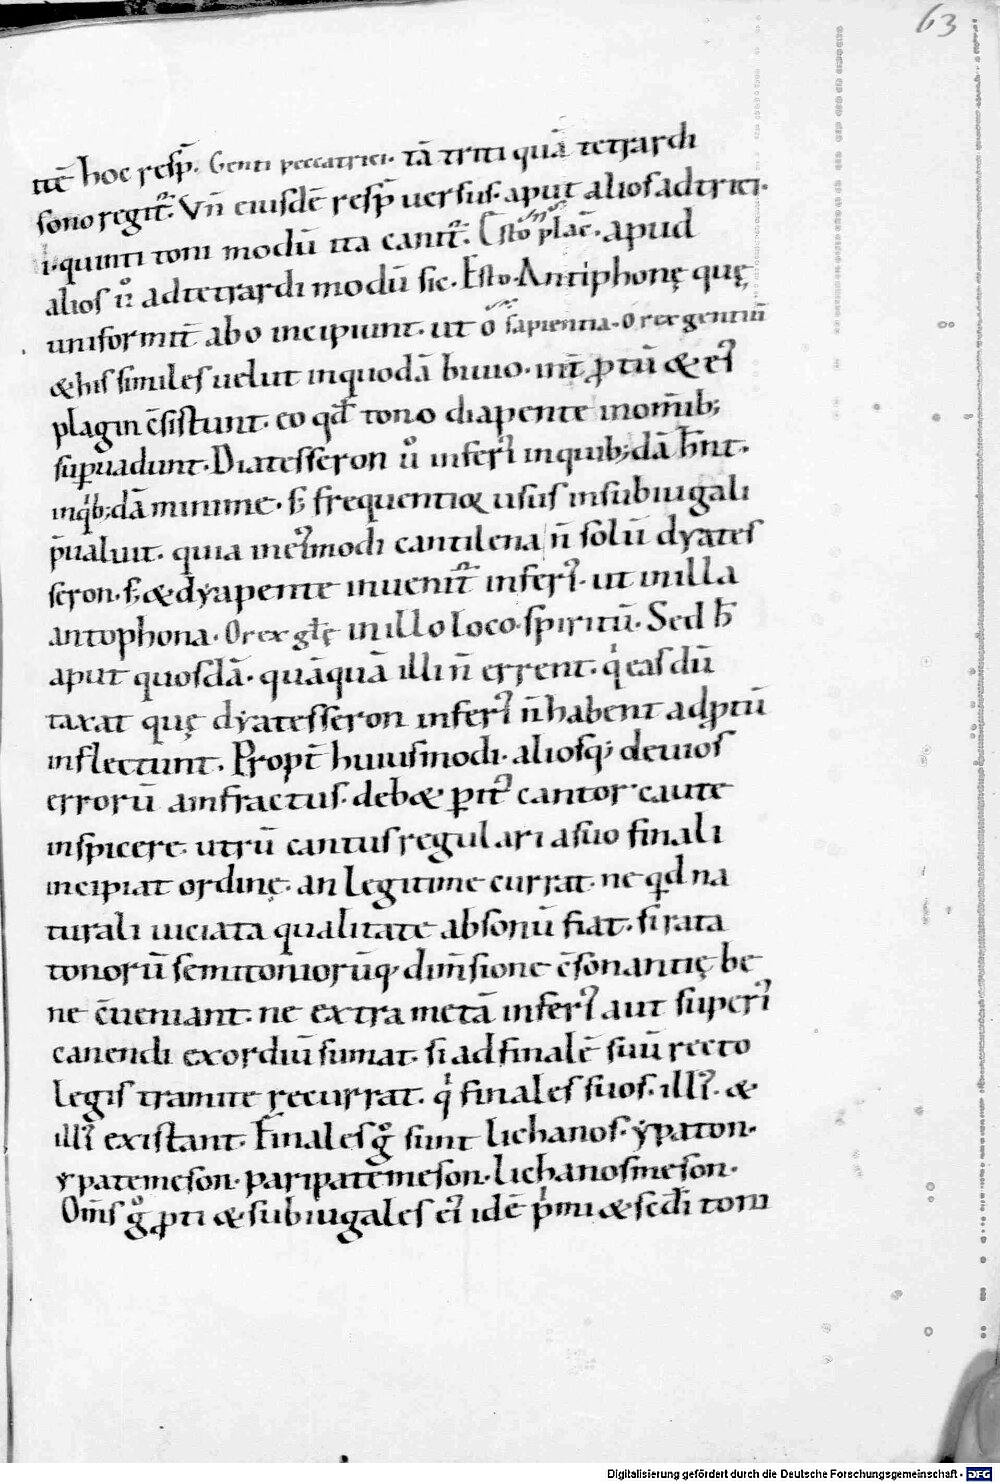 63
itē hoc resp̄. Genti peccatrici. tā triti quā tetrardi
sono regit᷑. Vn̄ eiusdē resp̄ uersus. aput alios ad trici.
i. quinti toni modū ita canit᷑. Esto plac̄. apud
alios ů ad tetrardi modū sic. Esto. Antiphonę quę
uniformit̄ ab o incipiunt. ut ó sapientia. O rex gentiū
& his similes uelut in quodā biuio. int̄ ꝓtū & ei᷒
plagin c̄sistunt. eo qđ tono diapente in om̄ib;
sup̱uadunt. Diatesseron ů inferi᷒ in quib;dā hn̄t.
in qͥb;dā minime. s; frequentior usus in subiugali
p̄ualuit. quia in ei᷒modi cantilena n̄ solū dyates
seron. s; & dyapente inuenit᷑ inferi᷒. ut in illa
antophona. O rex glę in illo loco. spiritū. Sed h̄
aput quosdā. quāquā illi n̄ errent. qͥ eas dū
taxat quę dyatesseron inferi᷒ n̄ habent ad ꝓtū
inflectunt. Propt̄ huiusmodi. aliosq; deuios
errorū amfractus. deb& ꝑit᷒ cantor caute
inspicere. utrū cantus regulari a suo finali
incipiat ordinę. an legitime currat. ne qd na
turali uiciata qualitate absonū fiat. si rata
tonorū semitoniorūq; dim̄sione c̄sonantię be
ne c̄ueniant. ne extra metā inferi᷒ aut superi᷒
canendi exordiū sumat. si ad finalē suū recto
legis tramite recurrat. qͥ finales suos. illi᷒. &
illi᷒ existant. Finales gͦ sunt lichanos. ypaton.
ypatemeson. paripatemeson. lichanosmeson.
Om̄s gͦ ꝓti & subiugales ei᷒ idē pͥmi & scđi toni
Digitalisierung gefördert durch die Deutsche Forschungsgemeinschaft - DFG